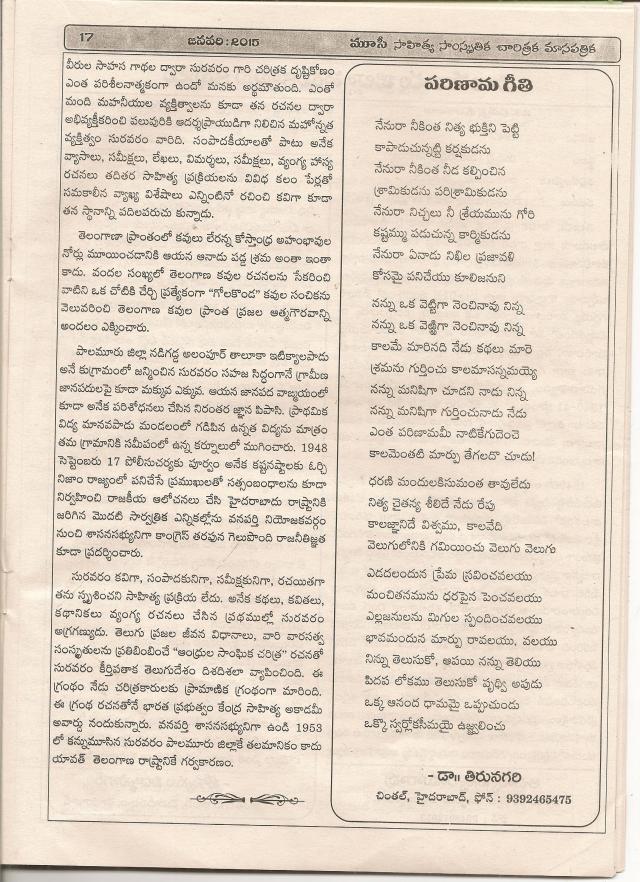 17
జనవరి: 2015
మూసీ సాహిత్య సాంస్కృతిక చారిత్రక మాసపత్రిక
వీరుల సాహస గాథల ద్వారా సురవరం గారి చరిత్రక దృష్టికోణం
ఎంత పరిశీలనాత్మకంగా ఉండో మనకు అర్థమౌతుంది. ఎంతో
మంది మహనీయుల వ్యక్తిత్వాలను కూడా తన రచనల ద్వారా
అభివ్యక్తీకరించి పలువురికి ఆదర్శప్రాయుడిగా నిలిచిన మహోన్నత
వ్యక్తిత్వం సురవరం వారిది. సంపాదకీయాలతో పాటు అనేక
వ్యాసాలు, సమీక్షలు, లేఖలు, విమర్శలు, సమీక్షలు, వ్యంగ్య హాస్య
రచనలు తదితర సాహిత్య ప్రక్రియలను వివిధ కలం పేర్లతో
సమకాలీన వ్యాఖ్య విశేషాలు ఎన్నింటినో రచించి కవిగా కూడా
తన స్థానాన్ని పదిలపరుచు కున్నాడు.
తెలంగాణా ప్రాంతంలో కవులు లేరన్న కోస్తాంధ్ర అహంభావుల
నోర్లు మూయించడానికి ఆయన ఆనాడు పడ్డ శ్రమ అంతా ఇంతా
కాదు. వందల సంఖ్యలో తెలంగాణ కవుల రచనలను సేకరించి
వాటిని ఒక చోటికి చేర్చి ప్రత్యేకంగా "గోలకొండ" కవుల సంచికను
వెలువరించి తెలంగాణ కవుల ప్రాంత ప్రజల ఆత్మగౌరవాన్ని
అందలం ఎక్కించారు.
పాలమూరు జిల్లా నడిగడ్డ అలంపూర్ తాలూకా ఇటిక్యాలపాడు
అనే కుగ్రామంలో జన్మించిన సురవరం సహజ సిద్ధంగానే గ్రామీణ
జానపదులపై కూడా మక్కువ ఎక్కువ. ఆయన జానపద వాఙ్మయంలో
కూడా అనేక పరిశోధనలు చేసిన నిరంతర జ్ఞాన పిపాసి. ప్రాథమిక
విద్య మానవపాడు మండలంలో గడిపిన ఉన్నత విద్యను మాత్రం
తమ గ్రామానికి సమీపంలో ఉన్న కర్నూలులో ముగించారు. 1948
సెప్టెంబరు 17 పోలీసుచర్యకు పూర్వం అనేక కష్టనష్టాలకు ఓర్చి
నిజాం రాజ్యంలో పనిచేసే ప్రముఖులతో సత్సంబంధాలను కూడా
నిర్వహించి రాజకీయ ఆలోచనలు చేసి హైదరాబాదు రాష్ట్రానికి
జరిగిన మొదటి సార్వత్రిక ఎన్నికల్లోను వనపర్తి నియోజకవర్గం
నుంచి శాసనసభ్యునిగా కాంగ్రెస్ తరఫున గెలుపొంది రాజనీతిజ్ఞత
కూడా ప్రదర్శించారు.
సురవరం కవిగా, సంపాదకునిగా, సమీక్షకునిగా, రచయితగా
తను స్పృశించని సాహిత్య ప్రక్రియ లేదు. అనేక కథలు, కవితలు,
కథానికలు వ్యంగ్య రచనలు చేసిన ప్రథముల్లో సురవరం
అగ్రగణ్యుడు. తెలుగు ప్రజల జీవన విధానాలు, వారి వారసత్వ
సంస్కృతులను ప్రతిబింబించే "ఆంధ్రుల సాంఘిక చరిత్ర" రచనతో
సురవరం కీర్తిపతాక తెలుగుదేశం దిశదిశలా వ్యాపించింది. ఈ
గ్రంథం నేడు చరిత్రకారులకు ప్రామాణిక గ్రంథంగా మారింది.
ఈ గ్రంథ రచనతోనే భారత ప్రభుత్వం కేంద్ర సాహిత్య అకాడమీ
అవార్డు నందుకున్నారు. వనపర్తి శాసనసభ్యునిగా ఉండి 1953
లో కన్నుమూసిన సురవరం పాలమూరు జిల్లాకే తలమానికం కాదు
యావత్ తెలంగాణ రాష్ట్రానికే గర్వకారణం.
పరిణామ గీతి
నేనురా నీకింత నిత్య భుక్తిని పెట్టి
కాపాడుచున్నట్టి కర్షకుడను
నేనురా నీకింత నీడ కల్పించిన
శ్రామికుడను పరిశ్రామికుడను
నేనురా నిచ్చలు నీ శ్రేయమును గోరి
కష్టమ్ము పడుచున్న కార్మికుడను
నేనురా ఏనాడు నిఖిల ప్రజావళి
కోసమై పనిచేయు కూలిజనుని
నన్ను ఒక వెట్టిగా నెంచినావు నిన్న
నన్ను ఒక వెఱ్ఱిగా నెంచినావు నిన్న
కాలమే మారినది నేడు కథలు మారె
శ్రమను గుర్తించు కాలమాసన్నమయ్యె
నన్ను మనిషిగా చూడని నాడు నిన్న
నన్ను మనిషిగా గుర్తించునాడు నేడు
ఎంత పరిణామమీ నాటికేగుదెంచె
కాలమెంతటి మార్పు తేగలదొ చూడు!
ధరణి మందులకిసుమంత తావులేదు
నిత్య చైతన్య శీలిదే నేడు రేపు
కాలజ్ఞానిదే విశ్వము, కాలవేది
వెలుగులోనికి గమియించు వెలుగు వెలుగు
ఎడదలందున ప్రేమ స్రవించవలయు
మంచితనమును ధరపైన పెంచవలయు
ఎల్లజనులను మిగుల స్పందించవలయు
భావమందున మార్పు రావలయు, వలయు
నిన్ను తెలుసుకో, ఆపయి నన్ను తెలియు
పిదప లోకము తెలుసుకో పృథ్వి అపుడు
ఒక్క ఆనంద ధామమై ఒప్పుచుండు
ఒక్కొ స్వర్లోకసీమయై ఉజ్జ్వలించు
- డా॥ తిరునగరి
చింతల్, హైదరాబాద్, ఫోన్ : 9392465475